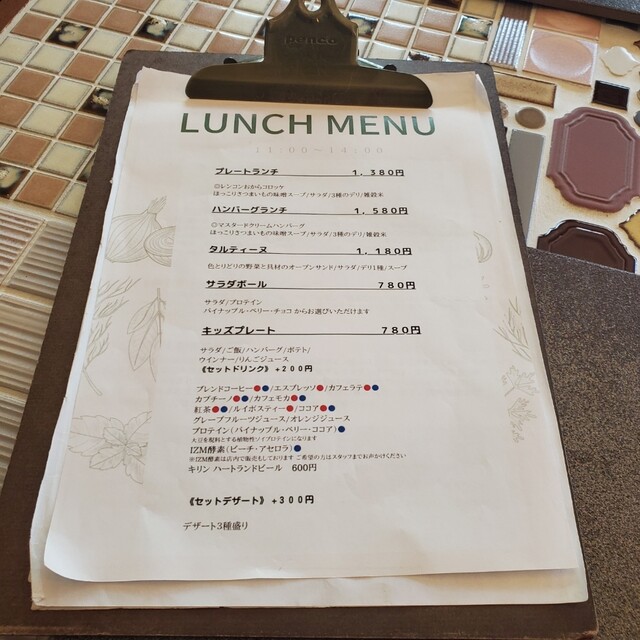 penco
LUNCH MENU
11:00～14:00
プレートランチ 1,380円
◎レンコンおからコロッケ
ほっこりさつまいもの味噌スープ/サラダ/3種のデリ/雑穀米
ハンバーグランチ 1,580円
◎マスタードクリームハンバーグ
ほっこりさつまいもの味噌スープ/サラダ/3種のデリ/雑穀米
タルティーヌ 1,180円
色とりどりの野菜と具材のオープンサンド/サラダ/デリ1種/スープ
サラダボール 780円
サラダ/プロテイン
パイナップル・ベリー・チョコ からお選びいただけます
キッズプレート 780円
サラダ/ご飯/ハンバーグ/ポテト/
ウインナー/りんごジュース
《セットドリンク》+200円
ブレンドコーヒー●●/エスプレッソ●/カフェラテ●●
カプチーノ●●/カフェモカ●●
紅茶●●/ルイボスティー●/ココア●●
グレープフルーツジュース/オレンジジュース
プロテイン(パイナップル・ベリー・ココア)●
大豆を原料とする植物性ソイプロテインになります
IZM酵素(ピーチ・アセロラ)●
※IZM酵素は店内で販売もしております ご希望の方はスタッフまでお声がけください
キリン ハートランドビール 600円
《セットデザート》+300円
デザート3種盛り